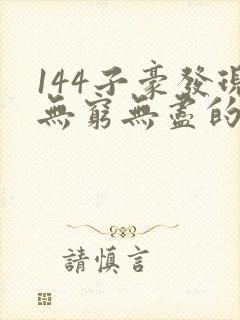 144子豪發現
無窮無盡的
請慎言